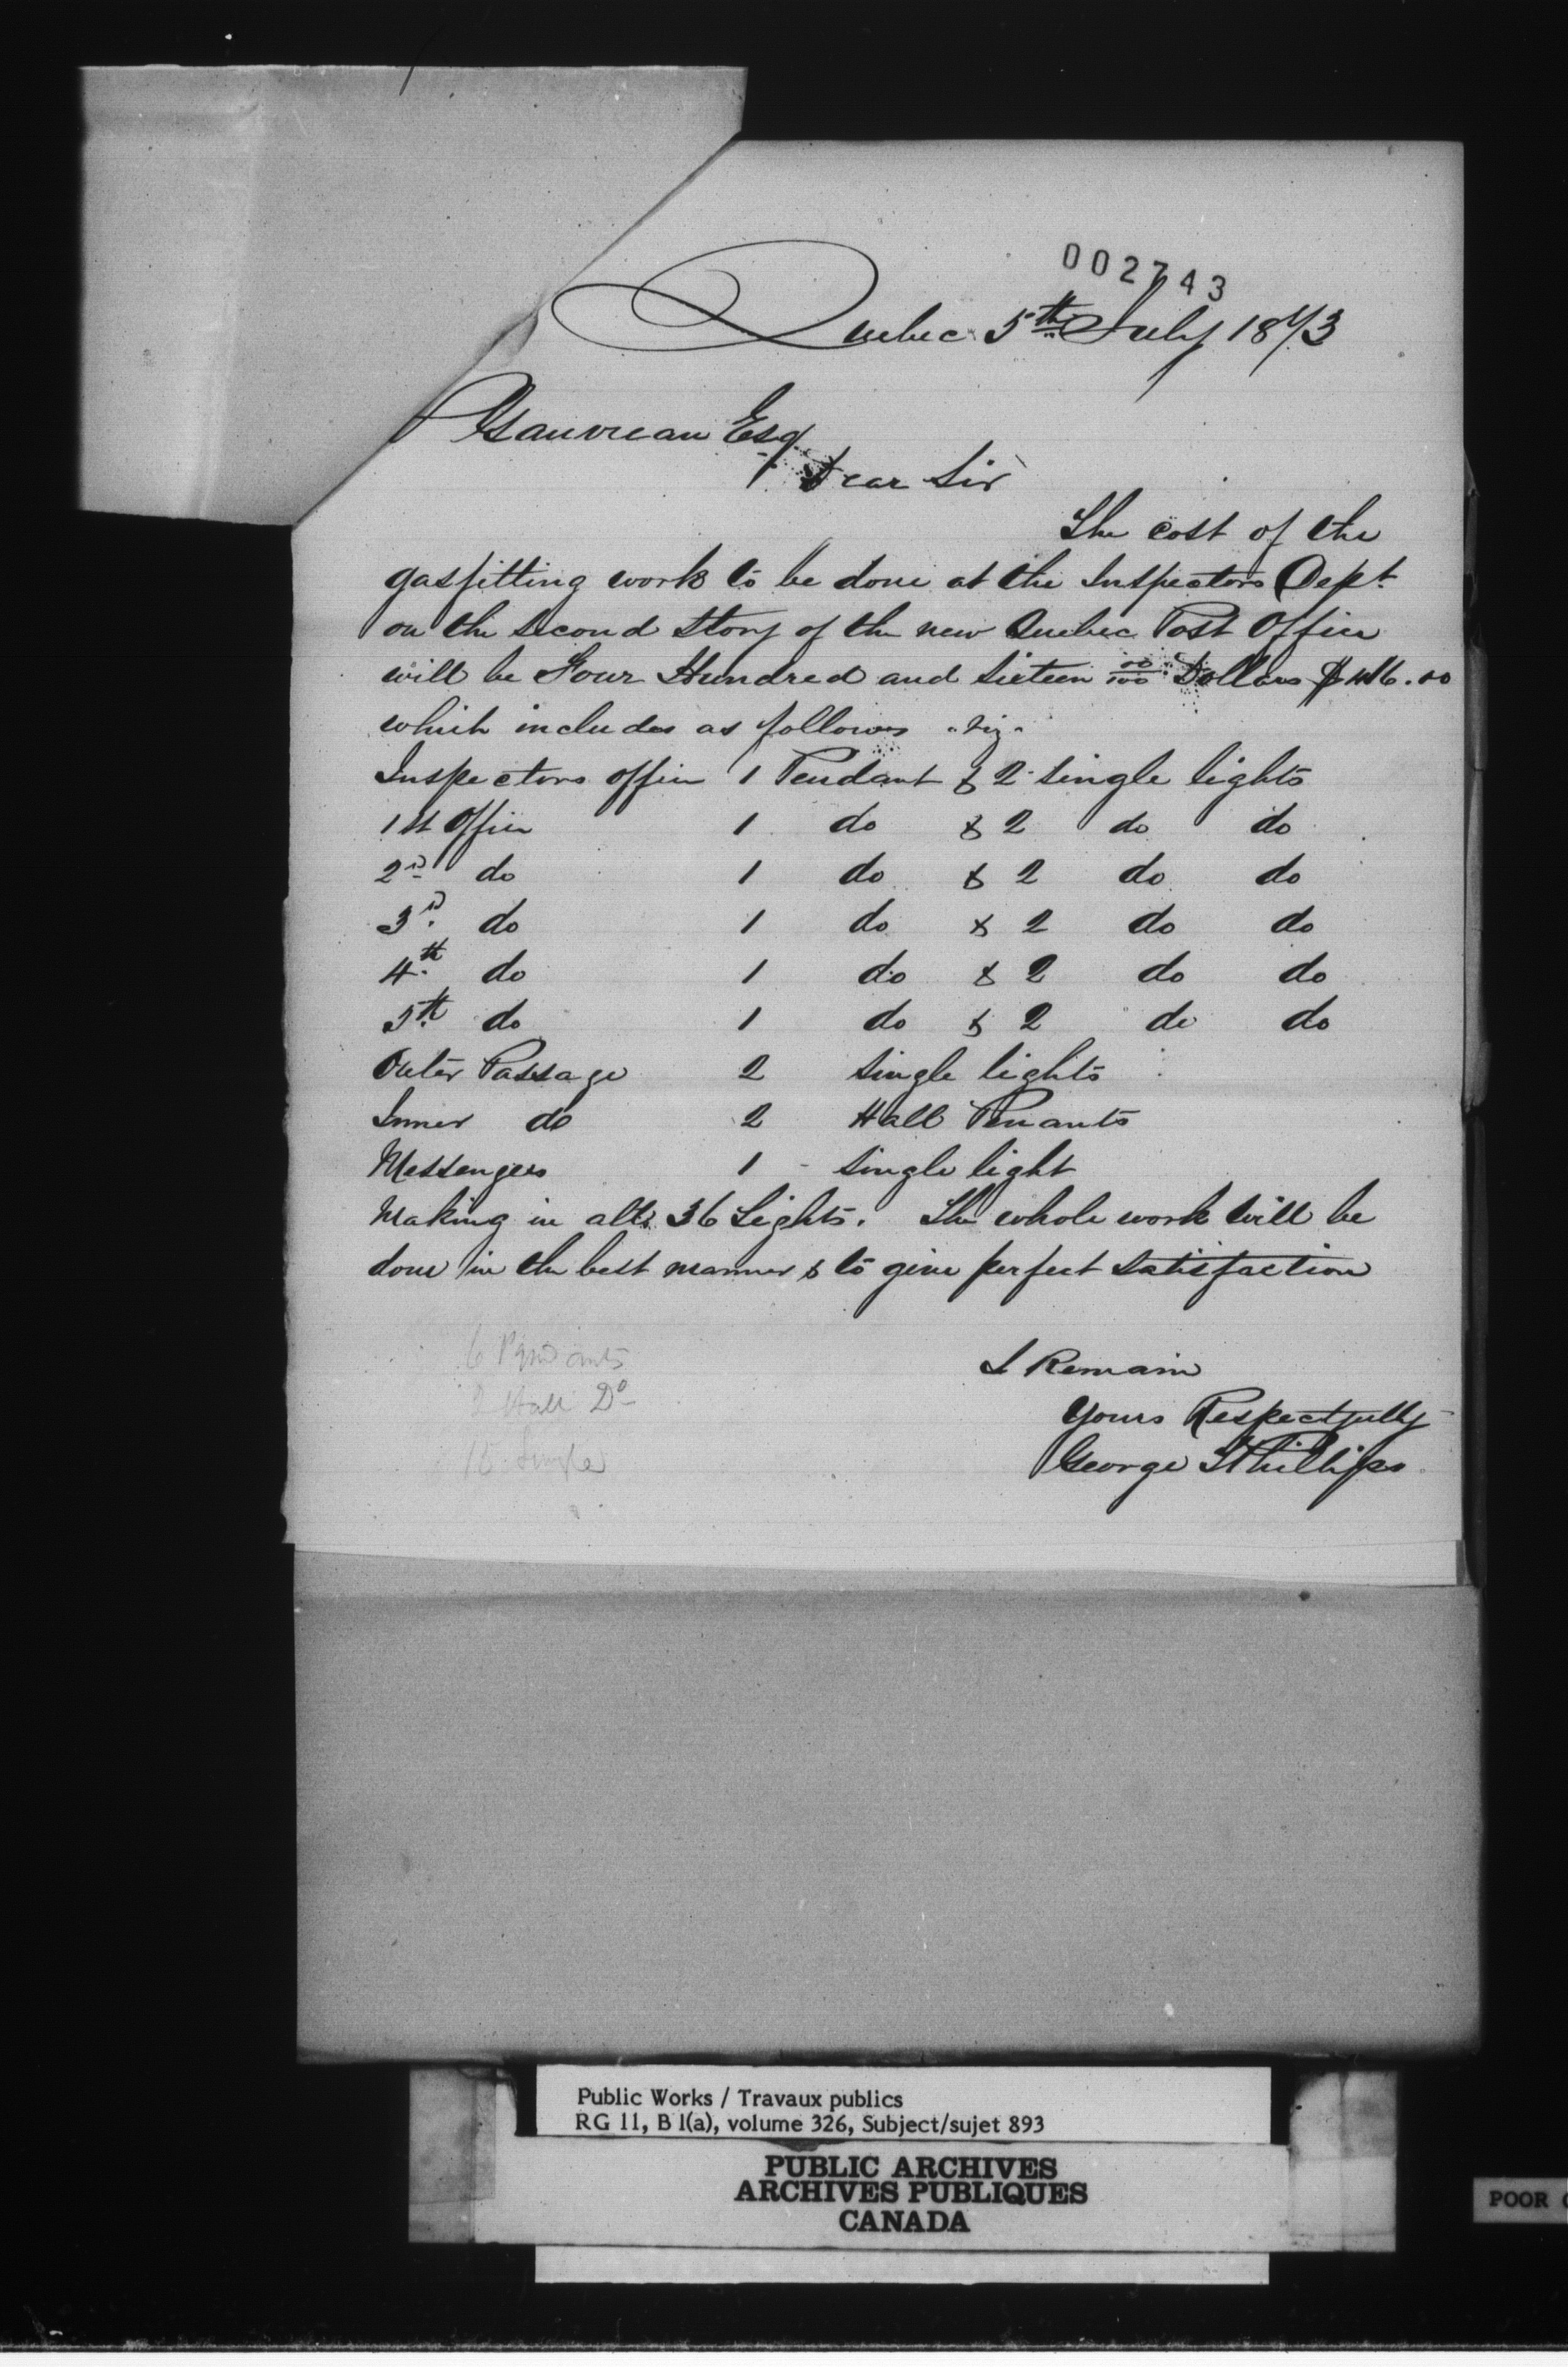 002743
Quebec 5th July 1873
Gauvreau Esq
Dear Sir
The cost of the
gasfitting work to be done at the Inspectors Dept.
on the second Story of the new Quebec Post Office
will be Four Hundred and Sixteen 00/100 Dollars $416.00
which includes as follows "viz"
Inspectors office 1 Pendant & 2 single lights
1st Office 1 do & 2 do do
2nd do 1 do & 2 do do
3d. do 1 do & 2 do do
4th do 1 do & 2 do do
5th do 1 do & 2 do do
Outer Passage 2 single lights
Inner do 2 Hall Penants
Messengers 1 - single light
Making in all 36 Lights. The whole work will be
done in the best manner & to give perfect satisfaction
6 Pendants
2 Hall Do
15 Single
I Remain
Yours Respectfully
George Phillips
Public Works / Travaux publics
RG 11, B 1(a), volume 326, Subject/sujet 893
PUBLIC ARCHIVES
ARCHIVES PUBLIQUES
CANADA
POOR